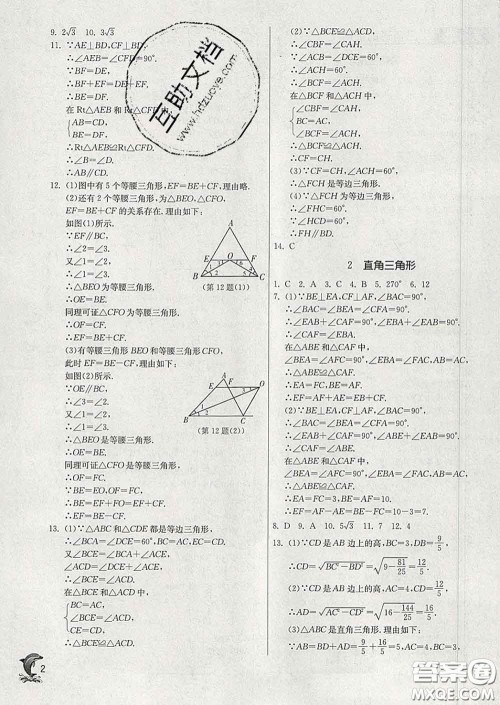 9. 2√3　10. 3√3
11. ∵AE⊥BD,CF⊥BD,
∴∠AEB=∠CFD=90°.
∵BF=DE,
∴BF+EF=DE+EF,
∴BE=DF.
在Rt△AEB和Rt△CFD中,
{AB=CD,
BE=DF,
∴Rt△AEB≌Rt△CFD.
∴∠B=∠D.
∴AB∥CD.
12. (1)图中有5个等腰三角形,EF=BE+CF,理由略.
(2)还有2个等腰三角形,为△BEO,△CFO,
EF=BE+CF的关系存在.理由如下:
如图(1)所示.
∵EF∥BC,
∴∠2=∠3.
又∵∠1=∠2,
∴∠1=∠3.
∴△BEO为等腰三角形.
∴OE=BE.
同理可证△CFO为等腰三角形.
∴OF=CF.
∴EF=BE+CF.
(第12题(1))
(3)有等腰三角形BEO与等腰三角形CFO,
此时EF=BE-CF.理由如下:
如图(2)所示.
∵OE∥BC,
∴∠3=∠2.
又∵∠1=∠2,
∴∠1=∠3.
∴△BEO是等腰三角形.
∴OE=BE.
同理可证△CFO是等腰三角形.
∴OF=CF.
∵BE=EO,OF=FC,
∴BE=EF+FO=EF+CF,
∴EF=BE-CF.
(第12题(2))
13. (1)∵△ABC和△CDE都是等边三角形,
∴∠BCA=∠ECA=∠DCE=60°,
又∵∠BCE=∠BCA+∠ACE,
∠ACD=∠DCE+∠ACE,
∴∠BCE=∠ACD.
在△BCE和△ACD中,
{BC=AC,
∠BCE=∠ACD,
CE=CD,
∴△BCE≌△ACD.
(2)∵△BCE≌△ACD,
∴∠CBF=∠CAH.
∵∠ACB=∠DCE=60°,
∴∠ACH=60°.
∴∠BCF=∠ACH.
在△BCF和△ACH中,
{∠CBF=∠CAH,
BC=AC,
∠BCF=∠ACH,
∴△BCF≌△ACH.
∴CF=CH.
∵∠FCH=60°,
∴△FCH是等边三角形.
(3)∵△CFH为等边三角形,
∴∠FHC=60°.
∵∠HCD=60°,
∴FH∥BD.
14. C
2　直角三角形
1. C　2. A　3. C　4. B　5. 270°　6. 12
7. (1)∵BE⊥EA,CF⊥AF,∠BAC=90°,
∴∠BAC=∠BEA=∠CFE=90°.
∴∠EAB+∠CAF=90°,∠EBA+∠EAB=90°.
∴∠CAF=∠EBA.
在△ABE和△CAF中,
∠BEA=∠AFC=90°,∠EBA=∠FAC,AB=AC,
∴△BEA≌△AFC.
∴EA=FC,BE=AF.
∴EF=AF+AE=EB+CF.
(2)∵BE⊥EA,CF⊥AF,∠BAC=90°,
∴∠BAC=∠BEA=∠CFE=90°.
∴∠EAB+∠CAF=90°,∠ABE+∠EAB=90°.
∴∠CAF=∠ABE.
在△ABE和△CAF中,
∠BEA=∠AFC=90°,∠EBA=∠FAC,AB=AC,
∴△BEA≌△AFC.
∴EA=FC=3,BE=AF=10.
∴EF=AF-AE=10-3=7.
8. D　9. A　10. 5√3　11. 7　12. 4
13. (1)∵CD是AB边上的高,BC=3,DB=9/5,
∴CD=√(BC²-BD²)=√(9-81/25)=12/5.
(2)∵CD是AB边上的高,AC=4,CD=12/5,
∴AD=√(AC²-CD²)=√(16-144/25)=16/5.
(3)△ABC是直角三角形.理由如下:
∵AB=AD+BD=16/5+9/5=5,AC=4,BC=3,
2
互助文档
www.hdzuoye.com
答案圈
MXQE.COM